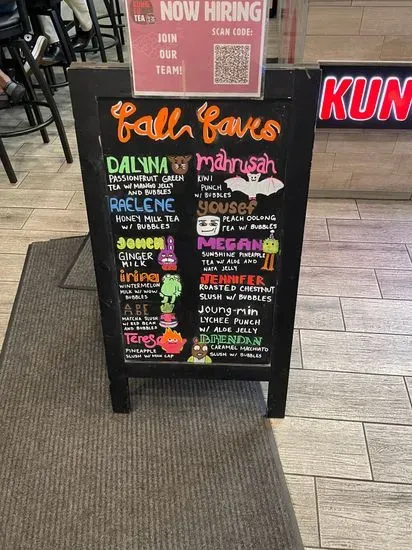 KUNG
TEA
NOW HIRING
JOIN
OUR
TEAM!
SCAN CODE:
KUN
Fall Faves
DALYNA
PASSIONFRUIT GREEN
TEA W/ MANGO JELLY
AND BUBBLES
RAELENE
HONEY MILK TEA
W/ BUBBLES
GINGER
MILK
irina
WINTERMELON
MILK W/ WOW
BUBBLES
ABE
MATCHA SLUSH
W/ RED BEAN
AND BUBBLES
Teresa
PINEAPPLE
SLUSH W/ MILK CAP
mahrusah
KIWI
PUNCH W/
BUBBLES
yousef
PEACH OOLONG
TEA W/ BUBBLES
MEGAN
SUNSHINE PINEAPPLE
TEA W/ ALOE AND
NATA JELLY
JENNIFER
ROASTED CHESTNUT
SLUSH W/ BUBBLES
Joung-min
LYCHEE PUNCH
W/ ALOE JELLY
BRENDAN
CARAMEL MACCHIATO
SLUSH W/ BUBBLES